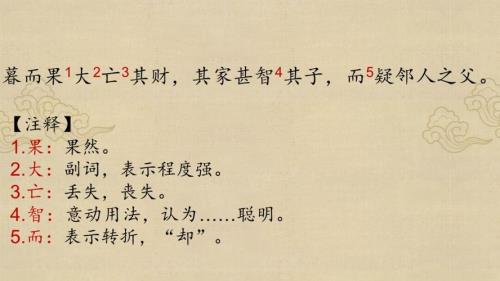 暮而果1大2亡3其财，其家甚智4其子，而5疑邻人之父。
【注释】
1.果：果然。
2.大：副词，表示程度强。
3.亡：丢失，丧失。
4.智：意动用法，认为……聪明。
5.而：表示转折，“却”。